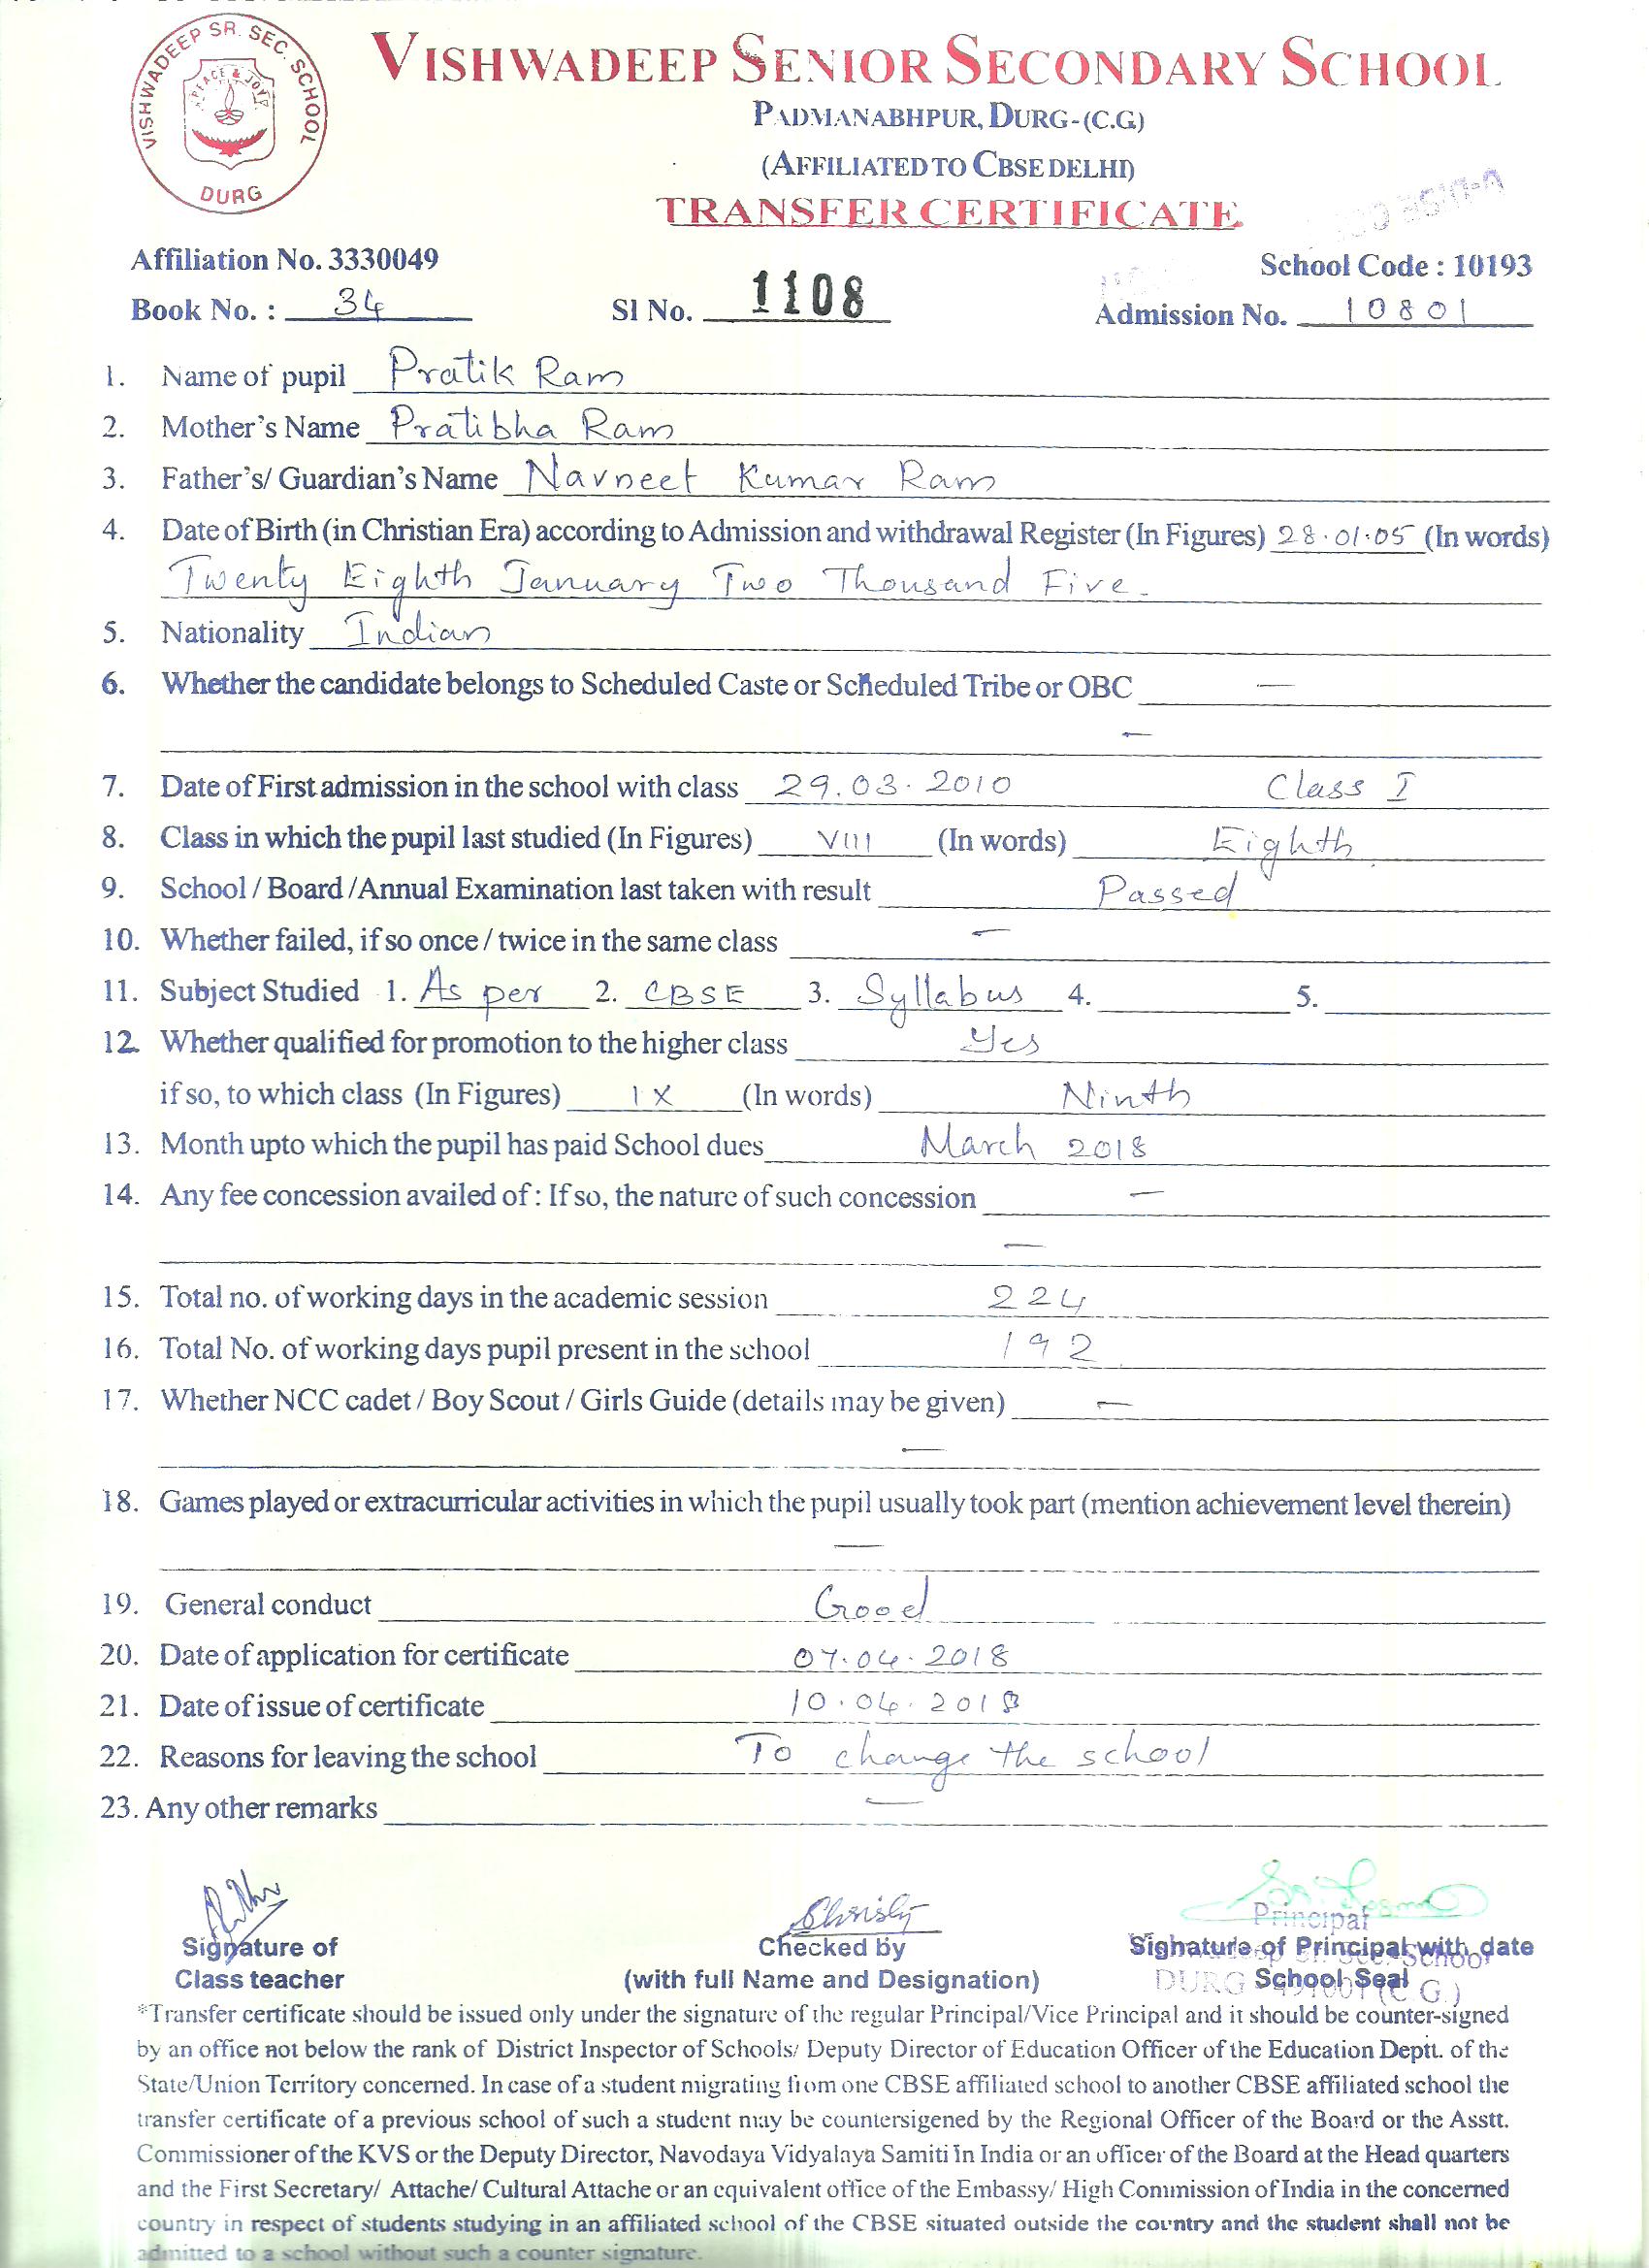 VISHWADEEP SR. SEC. SCHOOL
PEACE & JOY
DURG
VISHWADEEP SENIOR SECONDARY SCHOOL
PADMANABHPUR, DURG-(C.G)
(AFFILIATED TO CBSE DELHI)
TRANSFER CERTIFICATE
Affiliation No. 3330049
School Code : 10193
Book No. : 34 Sl No. 1108 Admission No. 10801
1. Name of pupil Pratik Ram
2. Mother's Name Pratibha Ram
3. Father's/ Guardian's Name Navneet Kumar Ram
4. Date of Birth (in Christian Era) according to Admission and withdrawal Register (In Figures) 28.01.05 (In words)
Twenty Eighth January Two Thousand Five.
5. Nationality Indian
6. Whether the candidate belongs to Scheduled Caste or Scheduled Tribe or OBC —
—
7. Date of First admission in the school with class 29.03.2010 Class I
8. Class in which the pupil last studied (In Figures) VIII (In words) Eighth
9. School / Board /Annual Examination last taken with result Passed
10. Whether failed, if so once / twice in the same class —
11. Subject Studied 1. As per 2. CBSE 3. Syllabus 4. 5.
12. Whether qualified for promotion to the higher class Yes
if so, to which class (In Figures) IX (In words) Ninth
13. Month upto which the pupil has paid School dues March 2018
14. Any fee concession availed of : If so, the nature of such concession —
—
15. Total no. of working days in the academic session 224
16. Total No. of working days pupil present in the school 192
17. Whether NCC cadet / Boy Scout / Girls Guide (details may be given) —
—
18. Games played or extracurricular activities in which the pupil usually took part (mention achievement level therein)
—
19. General conduct Good
20. Date of application for certificate 07.04.2018
21. Date of issue of certificate 10.04.2018
22. Reasons for leaving the school To change the school
23. Any other remarks —
Principal
Signature of Checked by Signature of Principal with date
Class teacher (with full Name and Designation) School Seal
DURG 491001 (C.G.)
*Transfer certificate should be issued only under the signature of the regular Principal/Vice Principal and it should be counter-signed
by an office not below the rank of District Inspector of Schools/ Deputy Director of Education Officer of the Education Deptt. of the
State/Union Territory concerned. In case of a student migrating from one CBSE affiliated school to another CBSE affiliated school the
transfer certificate of a previous school of such a student may be countersigened by the Regional Officer of the Board or the Asstt.
Commissioner of the KVS or the Deputy Director, Navodaya Vidyalaya Samiti in India or an officer of the Board at the Head quarters
and the First Secretary/ Attache/ Cultural Attache or an equivalent office of the Embassy/ High Commission of India in the concerned
country in respect of students studying in an affiliated school of the CBSE situated outside the country and the student shall not be
admitted to a school without such a counter signature.